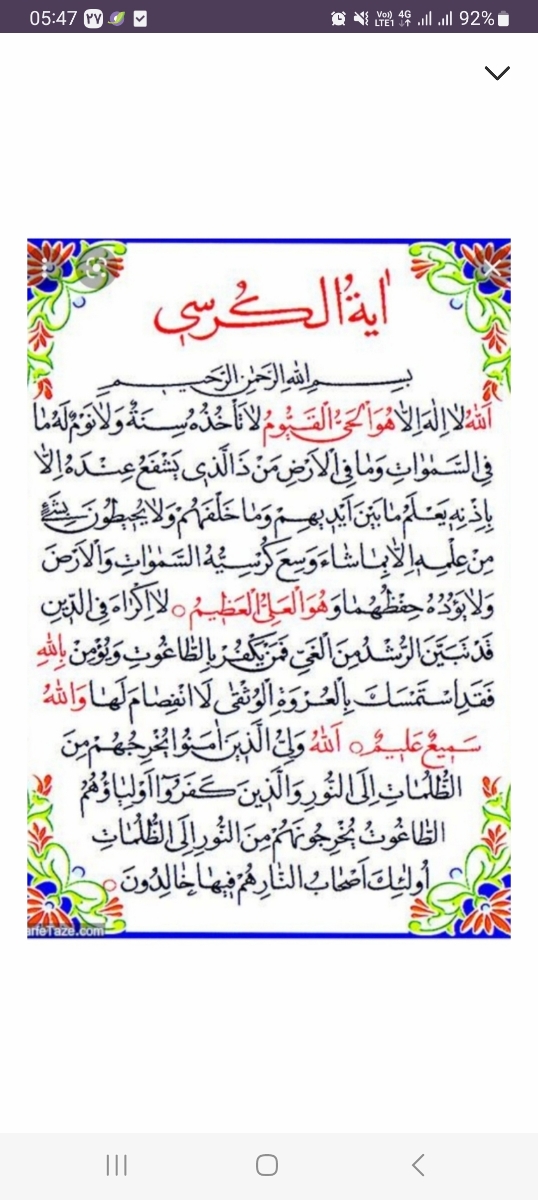 05:47 ۲۷ Vo)) LTE1 4G 92%
اٰیةُ الکُرسی
بسم الله الرحمن الرحیم
اَللهُ لا اِلٰهَ اِلاّٰ هُوَ الْحَیُّ الْقَیُّومُ لا تَأْخُذُهُ سِنَةٌ وَلا نَوْمٌ لَهُ مٰا
فِی السَّمٰوٰاتِ وَمٰا فِی الْاَرْضِ مَنْ ذَا الَّذی یَشْفَعُ عِنْدَهُ اِلاّٰ
بِاِذْنِهِ یَعْلَمُ مٰا بَیْنَ اَیْدِیهِمْ وَمٰا خَلْفَهُمْ وَلا یُحِیطُونَ بِشَیْءٍ
مِنْ عِلْمِهِ اِلاّٰ بِمٰا شٰاءَ وَسِعَ کُرْسِیُّهُ السَّمٰوٰاتِ وَالْاَرْضَ
وَلا یَؤُدُهُ حِفْظُهُمٰا وَهُوَ الْعَلِیُّ الْعَظیمُ ○ لا اِکْرٰاهَ فِی الدّینِ
قَدْ تَبَیَّنَ الرُّشْدُ مِنَ الْغَیِّ فَمَنْ یَکْفُرْ بِالطّٰاغُوتِ وَیُؤْمِنْ بِاللهِ
فَقَدِ اسْتَمْسَكَ بِالْعُرْوَةِ الْوُثْقٰی لَا انْفِصٰامَ لَهٰا وَاللهُ
سَمیعٌ عَلیمٌ ○ اَللهُ وَلِیُّ الَّذینَ اٰمَنُوا یُخْرِجُهُمْ مِنَ
الظُّلُمٰاتِ اِلَی النُّورِ وَالَّذینَ کَفَرُوٓا اَوْلِیٰاؤُهُمُ
الطّٰاغُوتُ یُخْرِجُونَهُمْ مِنَ النُّورِ اِلَی الظُّلُمٰاتِ
اُولٰئِكَ اَصْحٰابُ النّٰارِ هُمْ فیهٰا خٰالِدُونَ ○
arieTaze.com